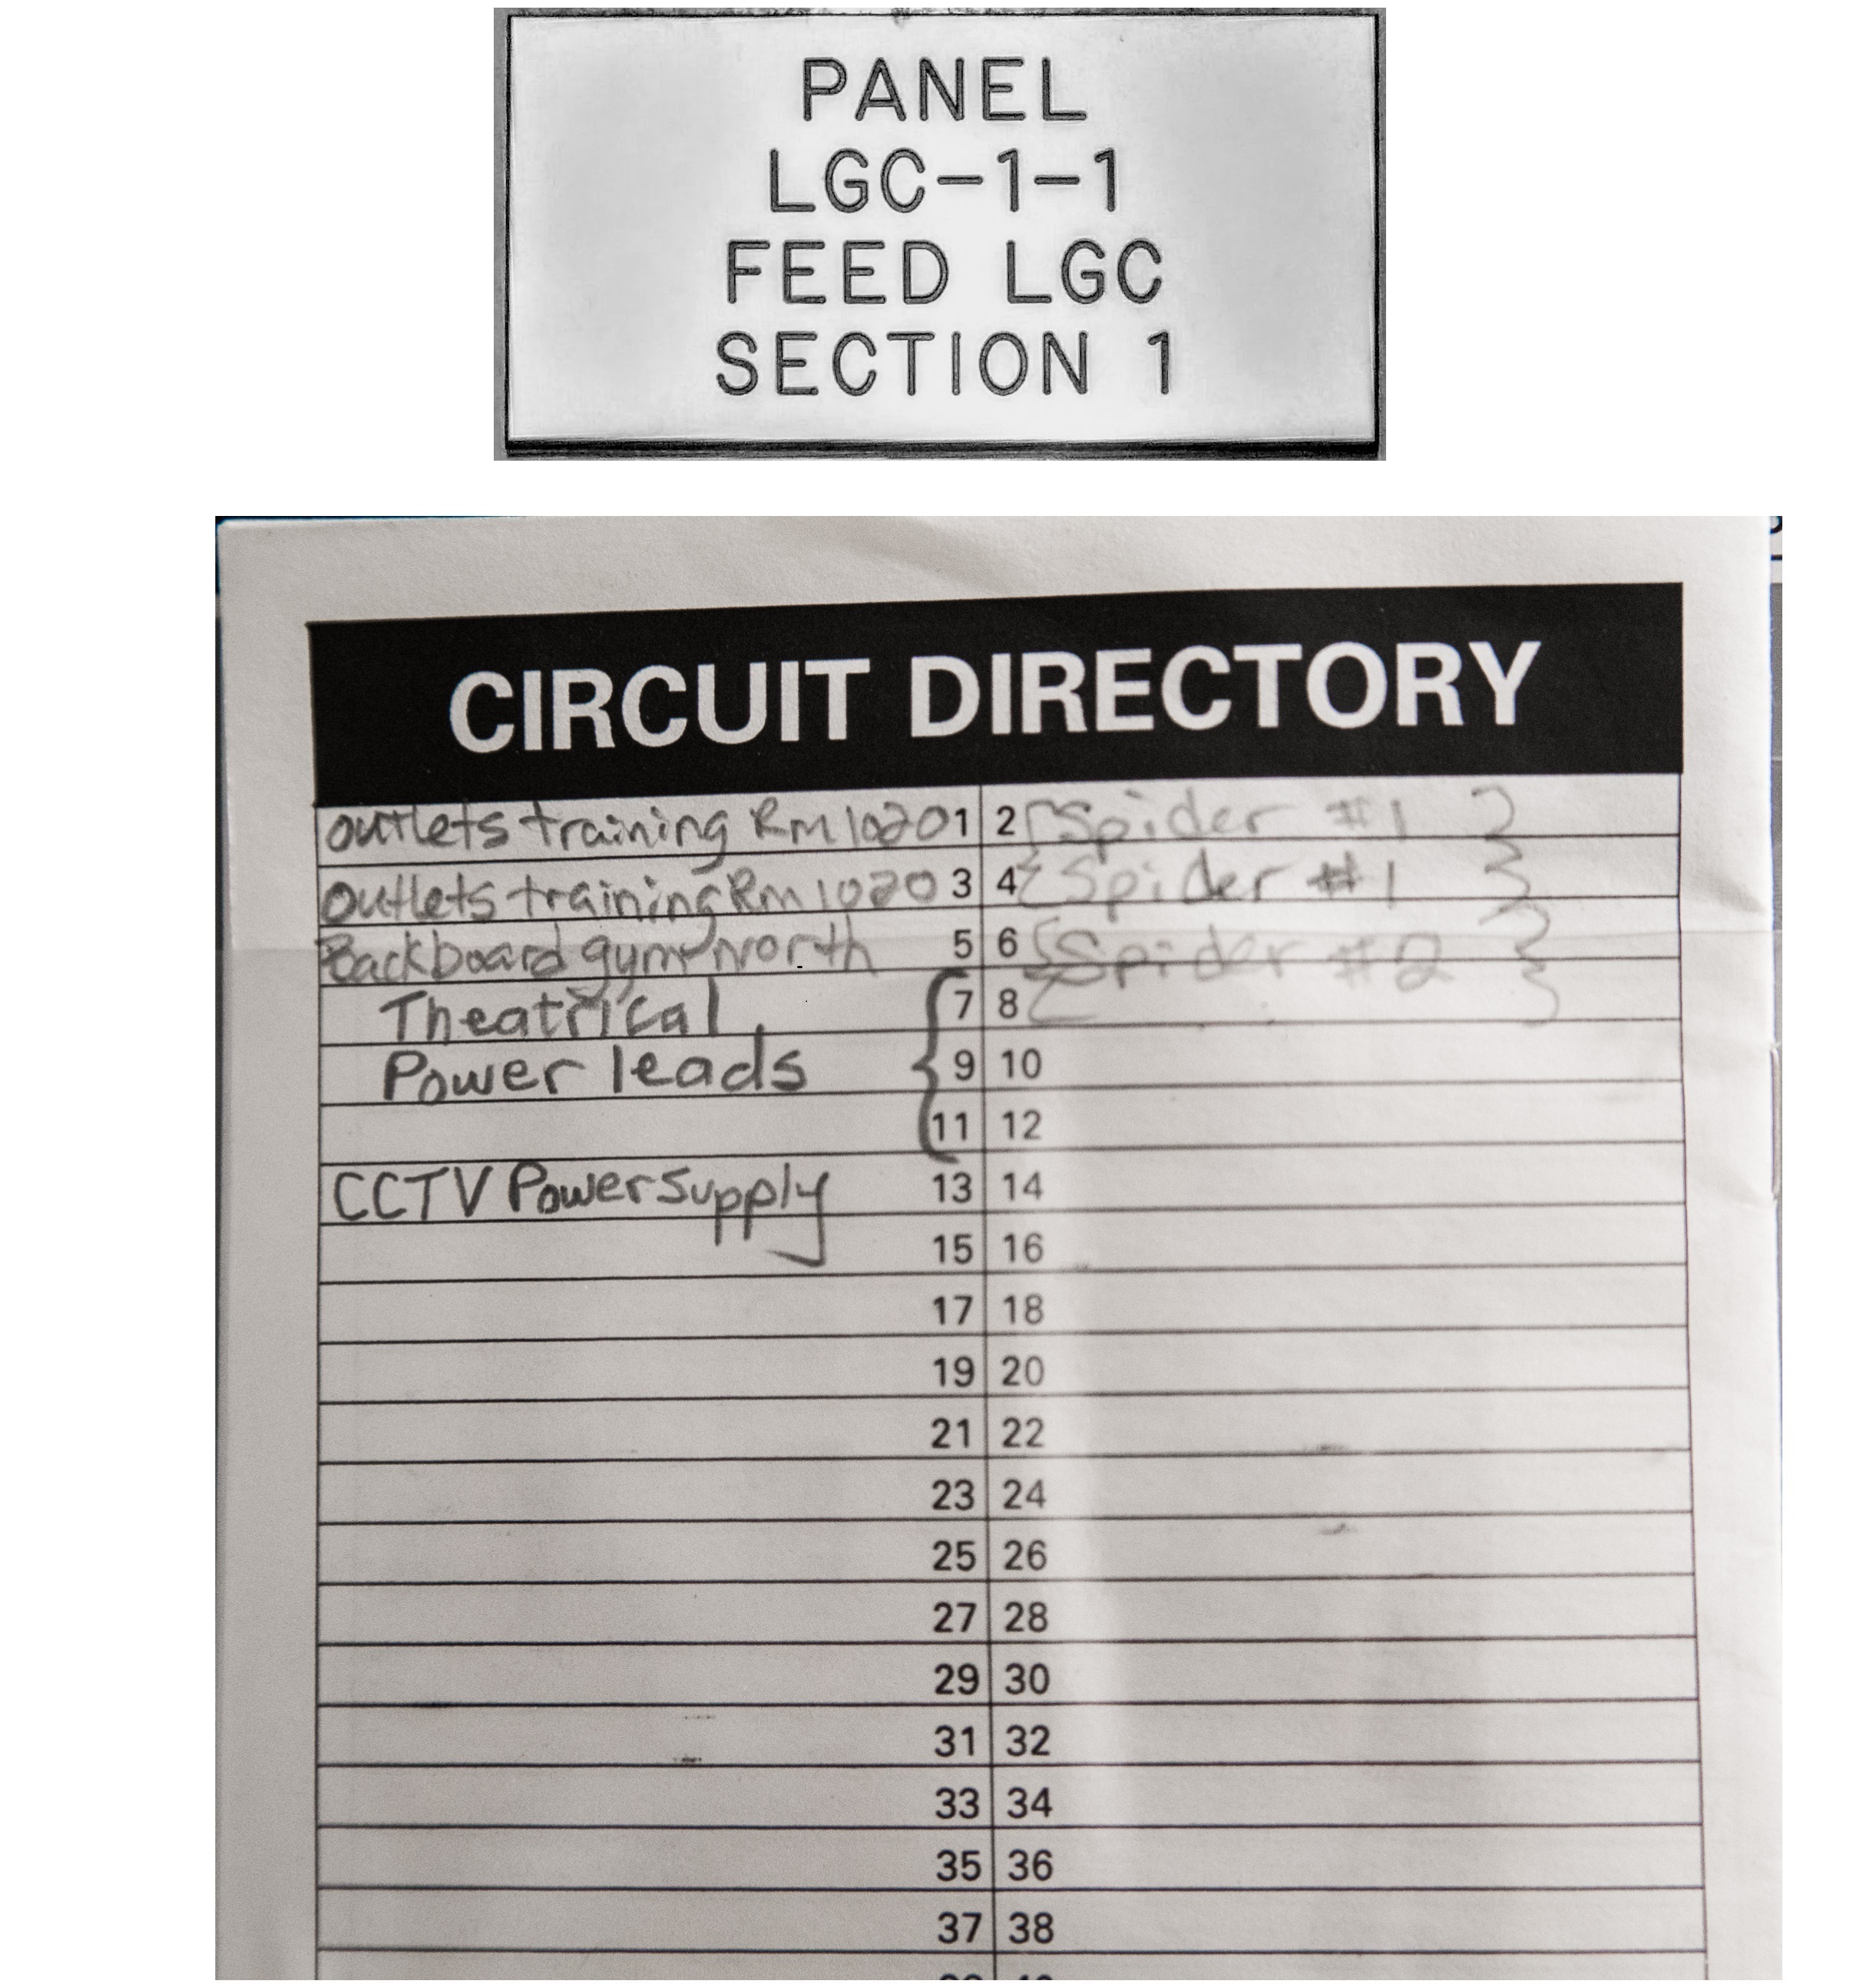 PANEL
LGC-1-1
FEED LGC
SECTION 1
CIRCUIT DIRECTORY
outlets training Rm 1020 1 2 {Spider #1 }
outlets training Rm 1020 3 4 {Spider #1 }
Backboard gym north 5 6 {Spider #2 }
Theatrical { 7 8 { }
Power leads 9 10
11 12
CCTV Power supply 13 14
15 16
17 18
19 20
21 22
23 24
25 26
27 28
29 30
31 32
33 34
35 36
37 38